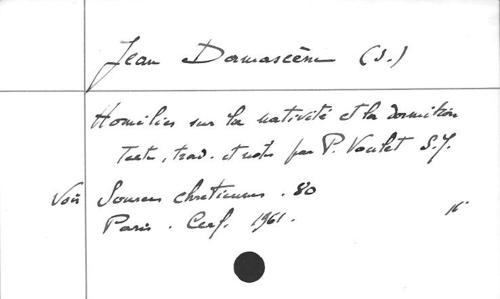 Jean Damascène (S.)
Homélies sur la nativité et la dormition
Texte, trad. et notes par P. Voulet S.J.
Voir Sources chrétiennes . 80
Paris . Cerf . 1961 .